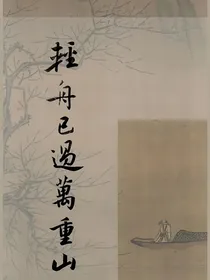 輕舟已過萬重山